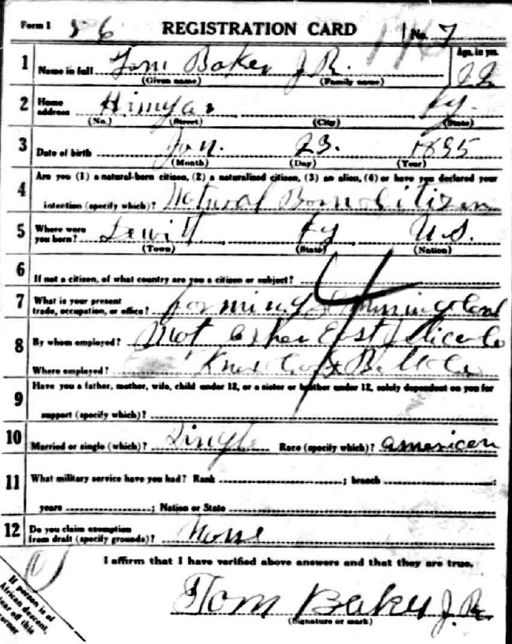 Form 1 86 REGISTRATION CARD No. 7
1 Name in full Tom Baker J R. Age, in yrs. 22
(Given name) (Family name)
2 Home address Himyar Ky.
(No.) (Street) (City) (State)
3 Date of birth Jan. 23. 1895
(Month) (Day) (Year)
4 Are you (1) a natural-born citizen, (2) a naturalized citizen, (3) an alien, (4) or have you declared your
intention (specify which)? Natural Born Citizen
5 Where were you born? Ky U.S.
(Town) (State) (Nation)
6 If not a citizen, of what country are you a citizen or subject?
7 What is your present trade, occupation, or office? farming
8 By whom employed?
Where employed? Knox Bell Co
9 Have you a father, mother, wife, child under 12, or a sister or brother under 12, solely dependent on you for
support (specify which)?
10 Married or single (which)? Single Race (specify which)? american
11 What military service have you had? Rank ; branch ;
years ; Nation or State
12 Do you claim exemption from draft (specify grounds)? None
I affirm that I have verified above answers and that they are true.
Tom Baker J. R.
(Signature or mark)
If person is of
African descent,
tear off this
corner